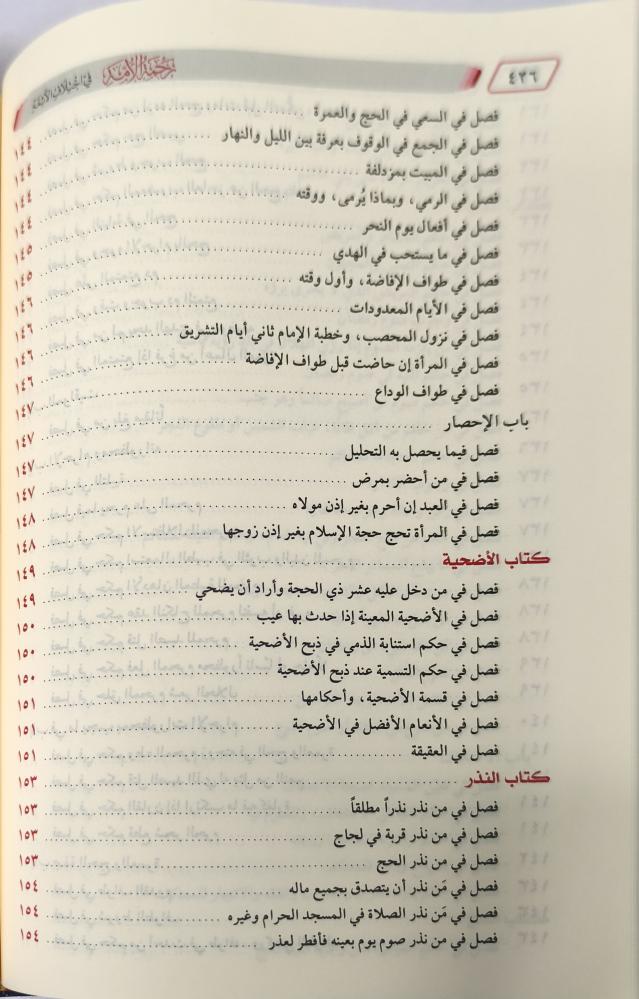 ٤٣٦ رحمة الأمة في اختلاف الأئمة
فصل في السعي في الحج والعمرة
فصل في الجمع في الوقوف بعرفة بين الليل والنهار ١٤٤
فصل في المبيت بمزدلفة ١٤٤
فصل في الرمي، وبماذا يُرمى، ووقته ١٤٤
فصل في أفعال يوم النحر ١٤٤
فصل في ما يستحب في الهدي ١٤٥
فصل في طواف الإفاضة، وأول وقته ١٤٥
فصل في الأيام المعدودات ١٤٦
فصل في نزول المحصب، وخطبة الإمام ثاني أيام التشريق ١٤٦
فصل في المرأة إن حاضت قبل طواف الإفاضة ١٤٦
فصل في طواف الوداع ١٤٧
باب الإحصار ١٤٧
فصل فيما يحصل به التحليل ١٤٧
فصل في من أحضر بمرض ١٤٧
فصل في العبد إن أحرم بغير إذن مولاه ١٤٨
فصل في المرأة تحج حجة الإسلام بغير إذن زوجها ١٤٨
كتاب الأضحية ١٤٩
فصل في من دخل عليه عشر ذي الحجة وأراد أن يضحي ١٤٩
فصل في الأضحية المعينة إذا حدث بها عيب ١٥٠
فصل في حكم استنابة الذمي في ذبح الأضحية ١٥٠
فصل في حكم التسمية عند ذبح الأضحية ١٥٠
فصل في قسمة الأضحية، وأحكامها ١٥١
فصل في الأنعام الأفضل في الأضحية ١٥١
فصل في العقيقة ١٥١
كتاب النذر ١٥٣
فصل في من نذر نذراً مطلقاً ١٥٣
فصل في من نذر قربة في لجاج ١٥٣
فصل في من نذر الحج ١٥٣
فصل في مَن نذر أن يتصدق بجميع ماله ١٥٤
فصل في مَن نذر الصلاة في المسجد الحرام وغيره ١٥٤
فصل في من نذر صوم يوم بعينه فأفطر لعذر ١٥٤